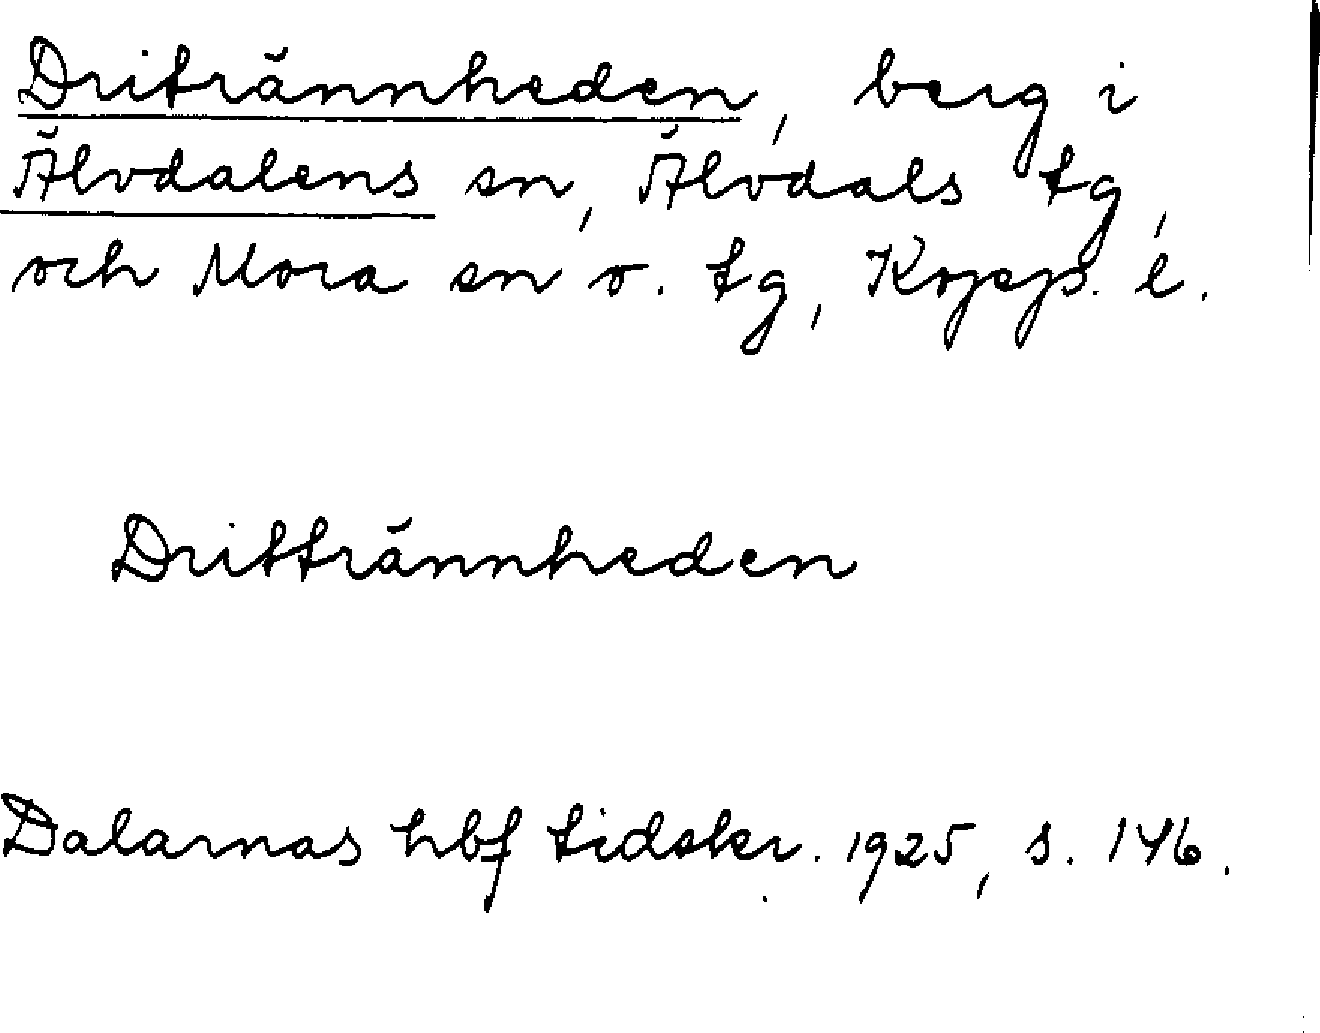 Dritrännheden, berg i
Älvdalens sn, Älvdals tg,
och Mora sn o. tg, Kopp. l.
Drittrännheden
Dalarnas hbf tidskr. 1925, s. 146.